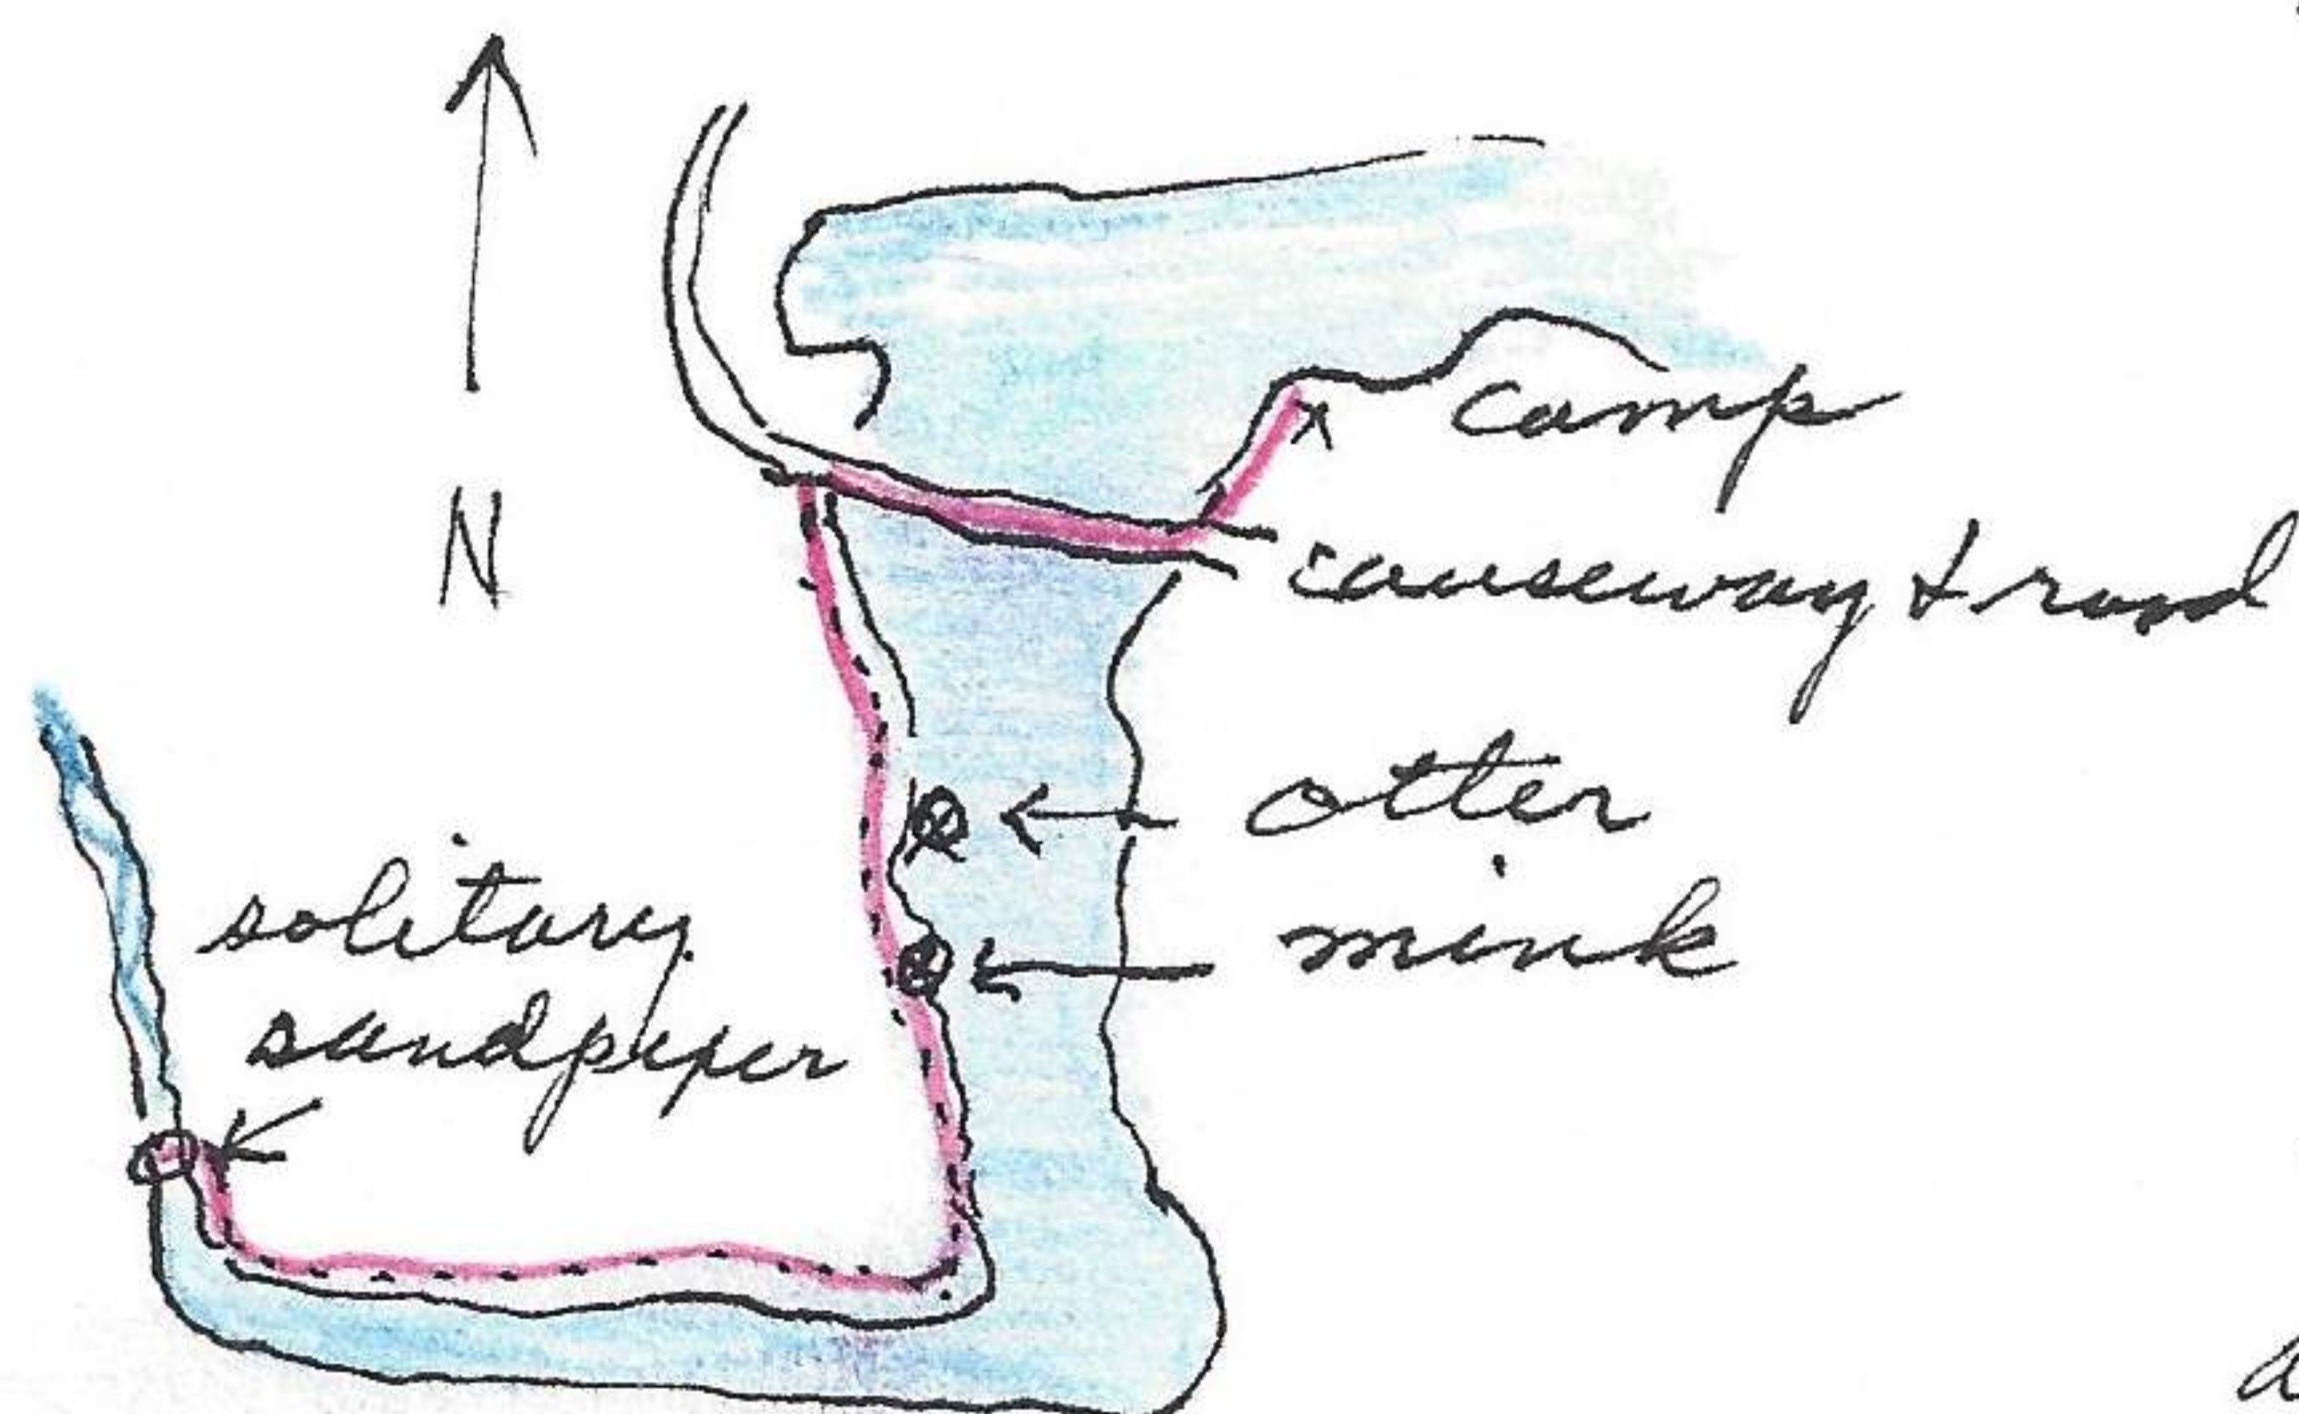 N
camp
causeway & road
otter
mink
solitary
sandpiper